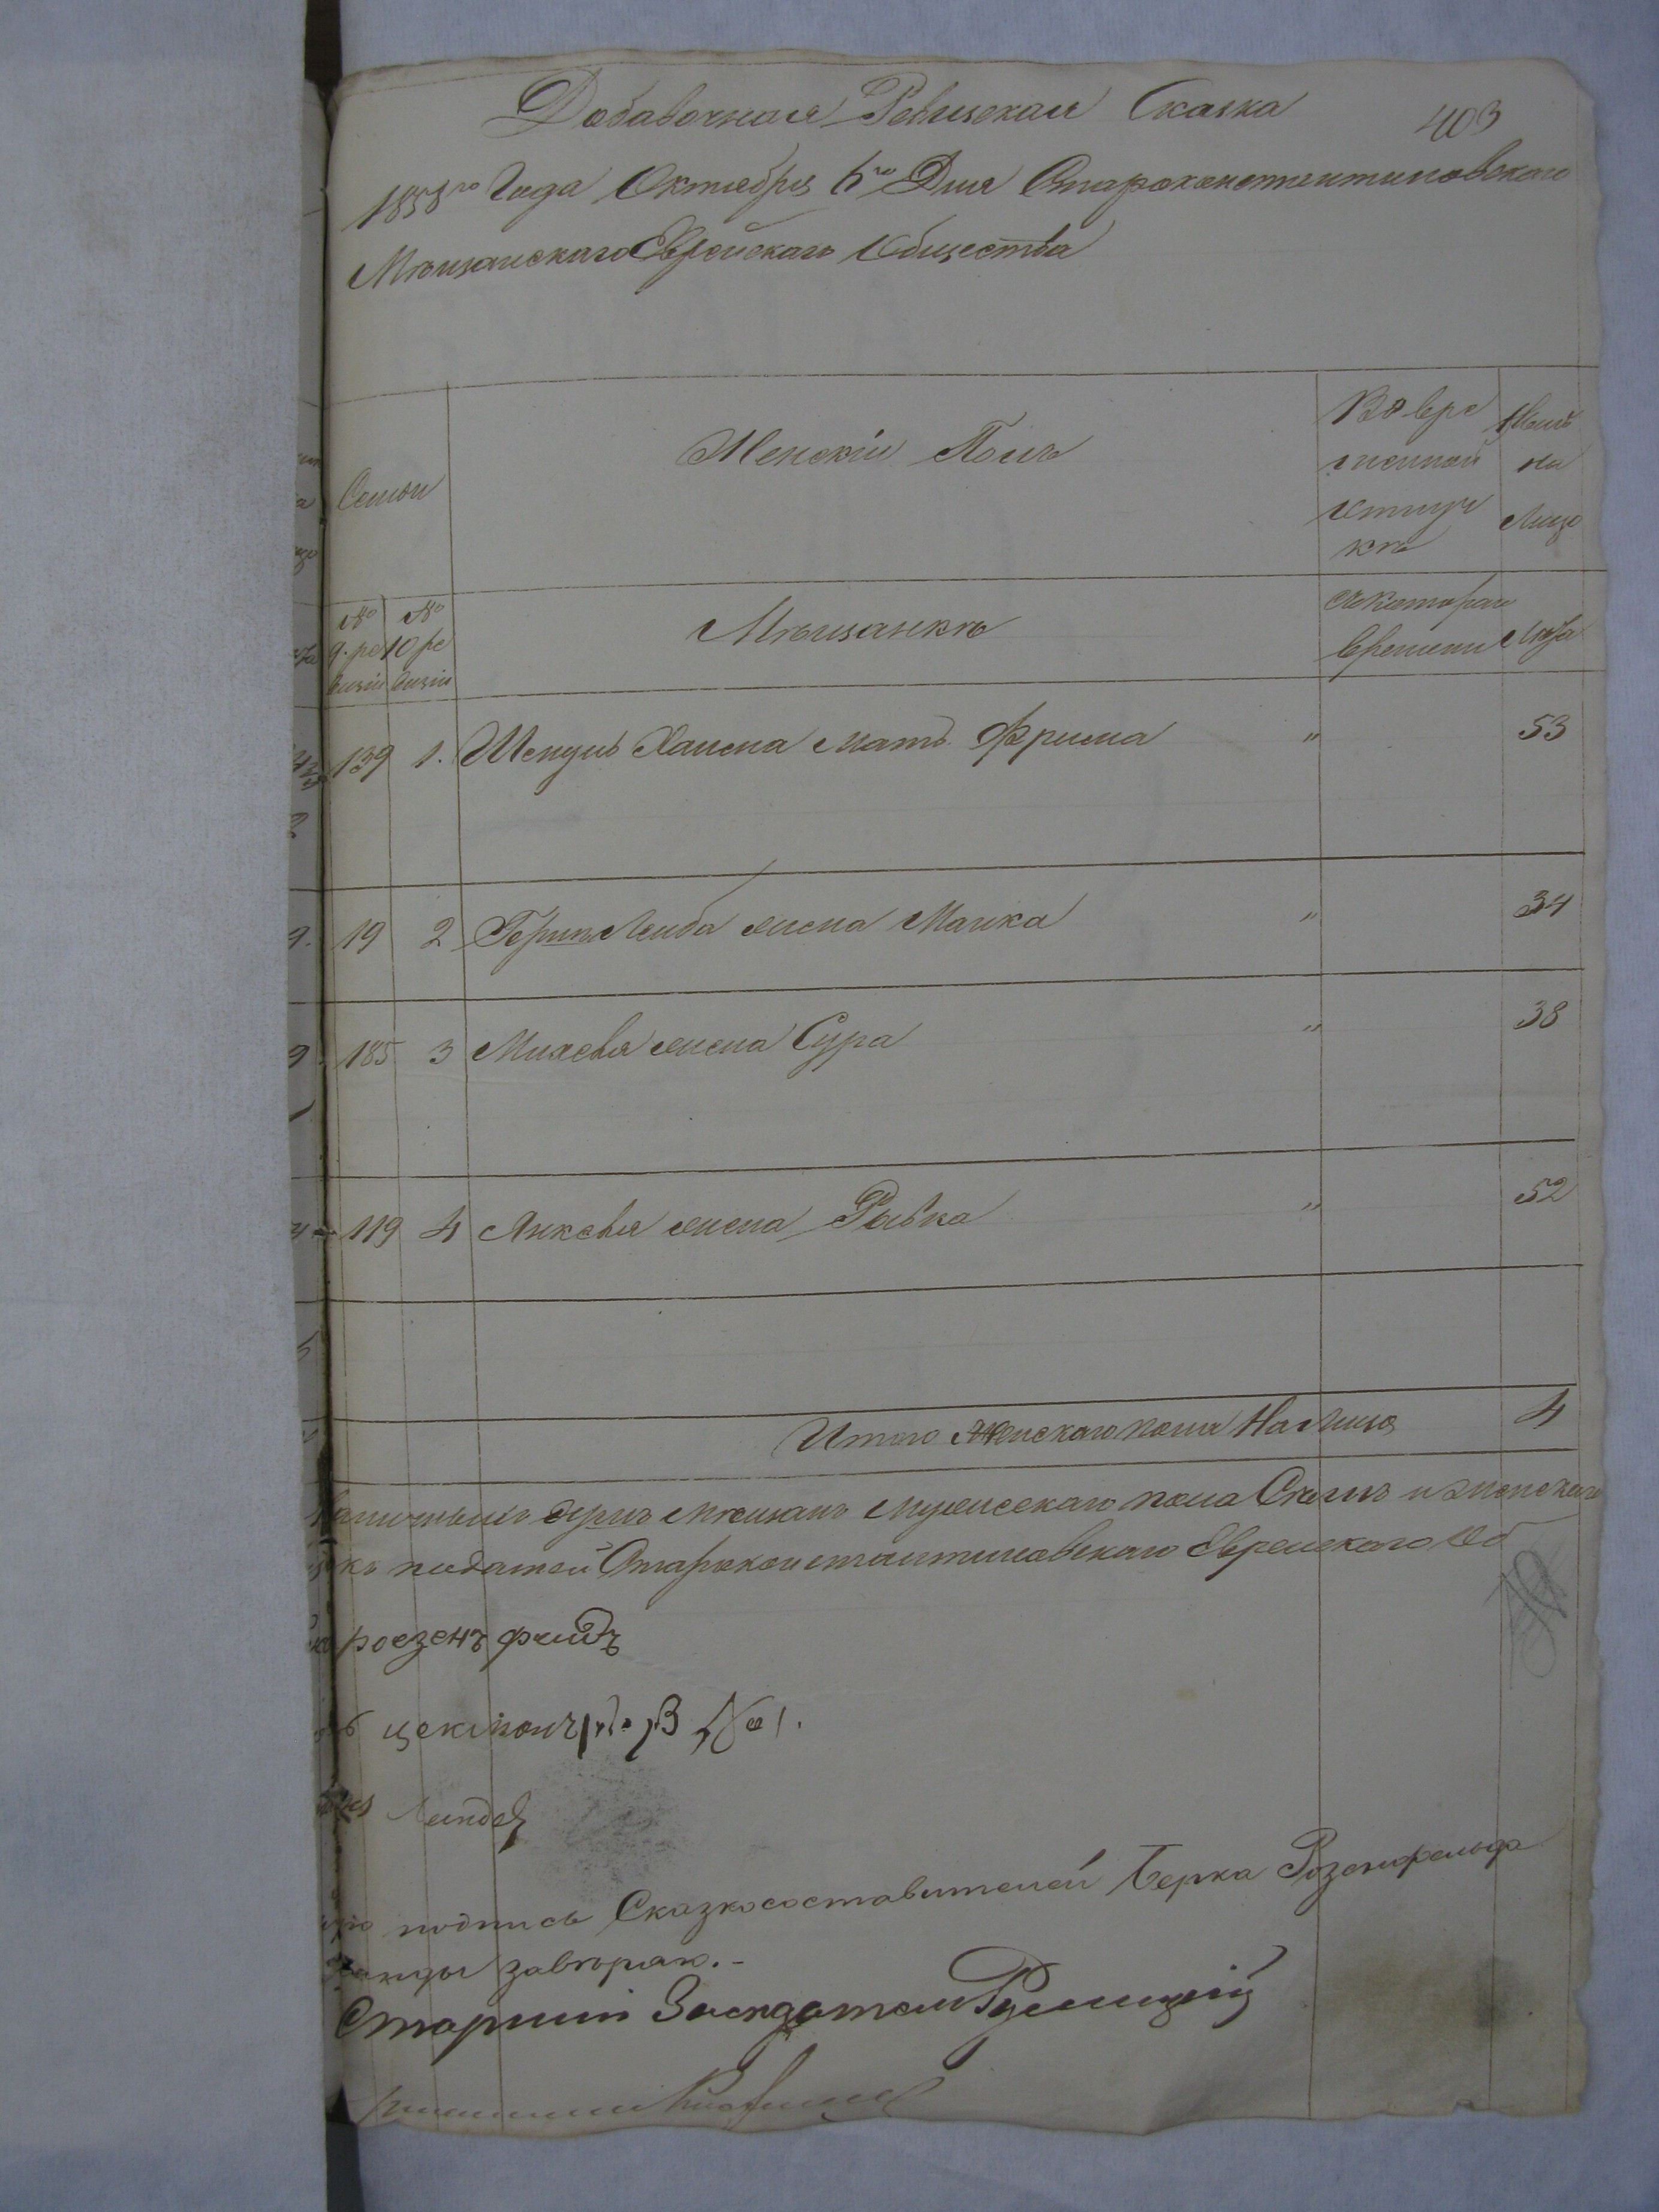 Добавочная Ревизская Сказка
403
1858го Года Октября 6го Дня Староконстантиновскаго
Мѣщанскаго Еврейскаго Общества
Семьи
Женскій Полъ
Во вре
менной
отлуч
кѣ
Нынѣ
на
Лицо
№
9. ре
визіи
№
10 ре
визіи
Мѣщанкъ
съ котораго
времени
Лѣта
139 1. Хаима мать Фрима " 53
19 2 Герш Лейба жена Малка " 34
185 3 Михеля жена Сура " 38
119 4 Янкеля жена Рывка " 52
Итого Женскаго пола На лицо 4
душъ мѣщанъ мужескаго пола и женскаго
къ податей Староконстантиновскаго Еврейскаго Об
роезенъ
Ландa
подпись Сказкосоставителей Берка Розенфельда
завѣряю.-
Старшій Засѣдатель